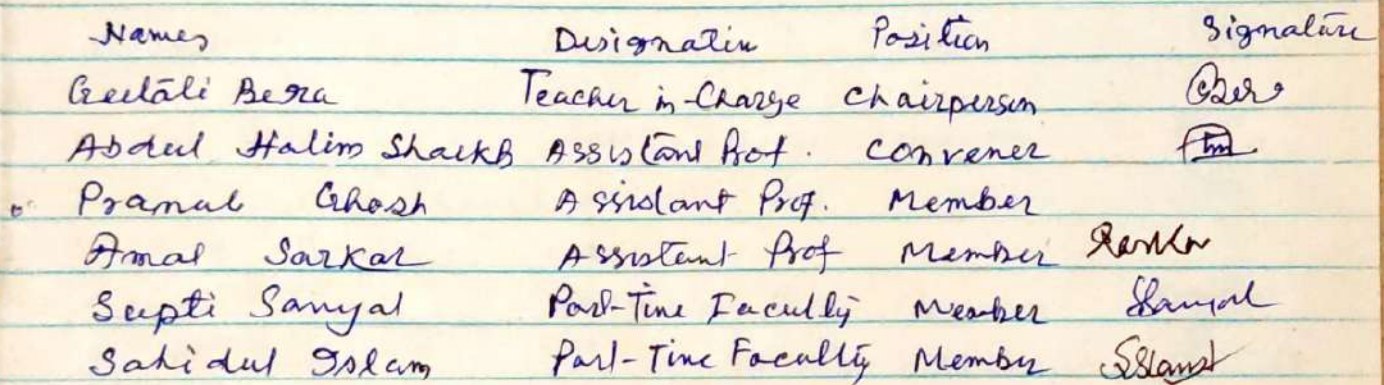 Names Designation Position Signature
Geetali Bera Teacher in-Charge Chairperson GBera
Abdul Halim Shaikh Assistant Prof. Convener
Pranab Ghosh Assistant Prof. Member
Amal Sarkar Assistant Prof Member Sarkar
Supti Sanyal Part-Time Faculty Member SSanyal
Sahidul Islam Part-Time Faculty Member SIslam